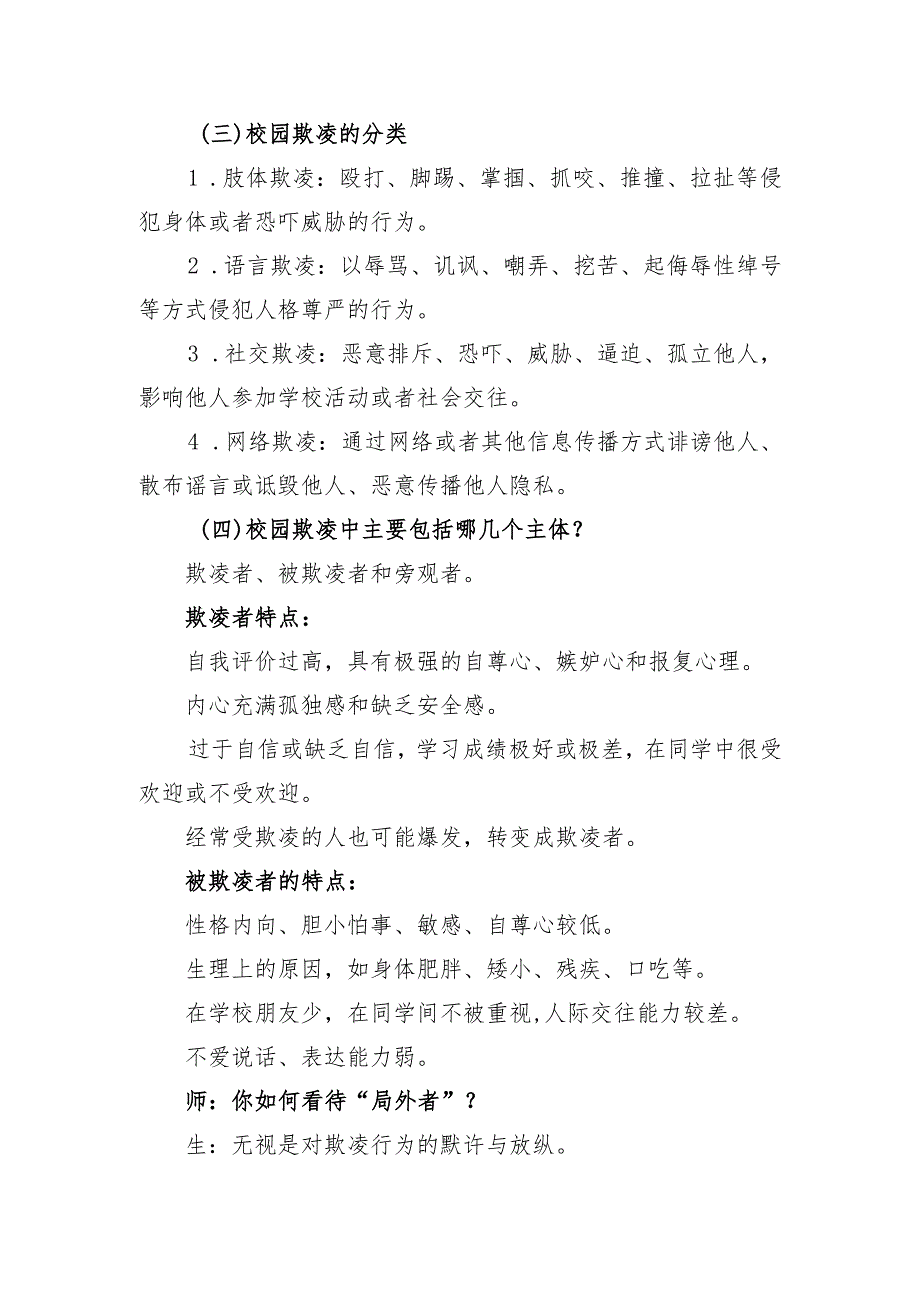 (三)校园欺凌的分类
1.肢体欺凌：殴打、脚踢、掌掴、抓咬、推撞、拉扯等侵
犯身体或者恐吓威胁的行为。
2.语言欺凌：以辱骂、讥讽、嘲弄、挖苦、起侮辱性绰号
等方式侵犯人格尊严的行为。
3.社交欺凌：恶意排斥、恐吓、威胁、逼迫、孤立他人，
影响他人参加学校活动或者社会交往。
4.网络欺凌：通过网络或者其他信息传播方式诽谤他人、
散布谣言或诋毁他人、恶意传播他人隐私。
(四)校园欺凌中主要包括哪几个主体？
欺凌者、被欺凌者和旁观者。
欺凌者特点：
自我评价过高，具有极强的自尊心、嫉妒心和报复心理。
内心充满孤独感和缺乏安全感。
过于自信或缺乏自信，学习成绩极好或极差，在同学中很受
欢迎或不受欢迎。
经常受欺凌的人也可能爆发，转变成欺凌者。
被欺凌者的特点：
性格内向、胆小怕事、敏感、自尊心较低。
生理上的原因，如身体肥胖、矮小、残疾、口吃等。
在学校朋友少，在同学间不被重视,人际交往能力较差。
不爱说话、表达能力弱。
师：你如何看待“局外者”？
生：无视是对欺凌行为的默许与放纵。